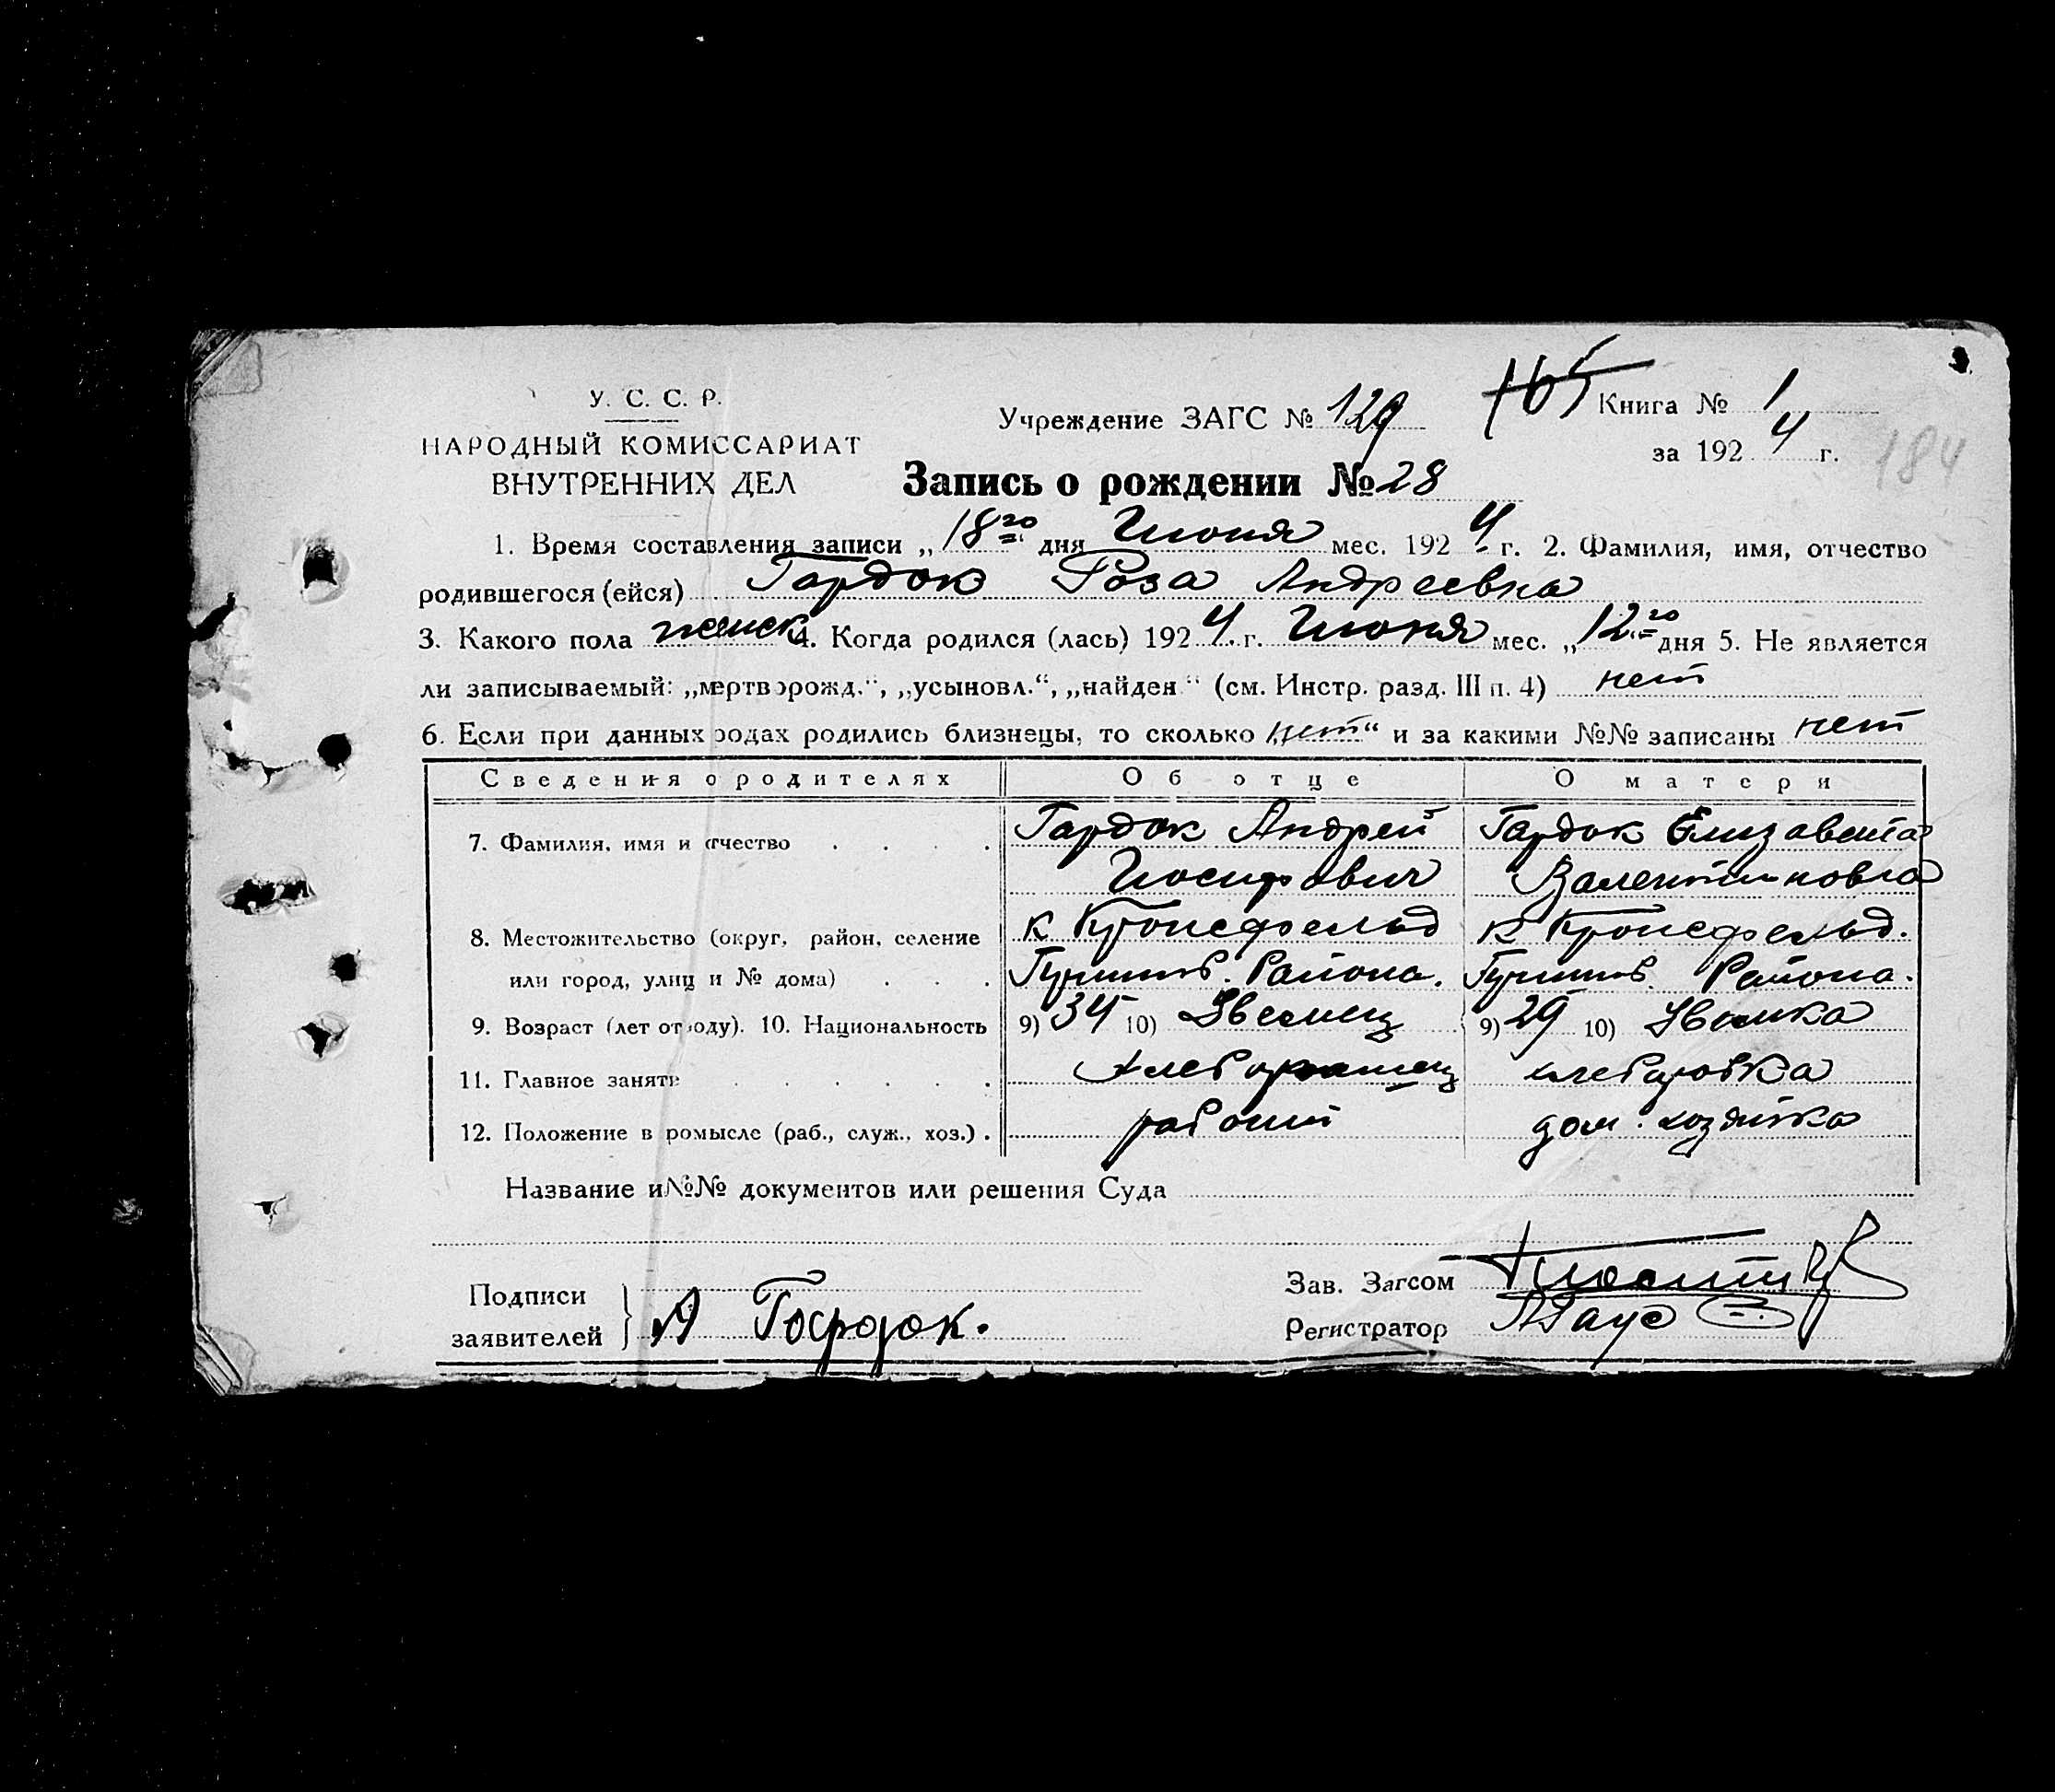 У. С. С. Р.
НАРОДНЫЙ КОМИССАРИАТ
ВНУТРЕННИХ ДЕЛ
Учреждение ЗАГС № 129
165 Книга № 1
за 1924 г.
184
Запись о рождении № 28
1. Время составления записи „18го" дня Июня мес. 1924 г. 2. Фамилия, имя, отчество
родившегося (ейся) Гардок Роза Андреевна
3. Какого пола женск 4. Когда родился (лась) 1924 г. Июня мес. „12го дня 5. Не является
ли записываемый: „мертворожд.", „усыновл.", „найден" (см. Инстр. разд. III п. 4) нет
6. Если при данных родах родились близнецы, то сколько „нет" и за какими №№ записаны нет
Сведения о родителях Об отце О матери
7. Фамилия, имя и отчество . . . . Гардок Андрей Гардок Елизавета
Иосифович Валентиновна
8. Местожительство (округ, район, селение к Кронсфельд к Кронсфельд.
или город, улиц и № дома) . . . Района. Района.
9. Возраст (лет от роду). 10. Национальность 9) 34 10) 9) 29 10)
11. Главное заняти . . . . . .
12. Положение в ромысле (раб., служ., хоз.) . рабочий дом. хозяйка
Название и №№ документов или решения Суда
Подписи
заявителей А Гордок.
Зав. Загсом
Регистратор